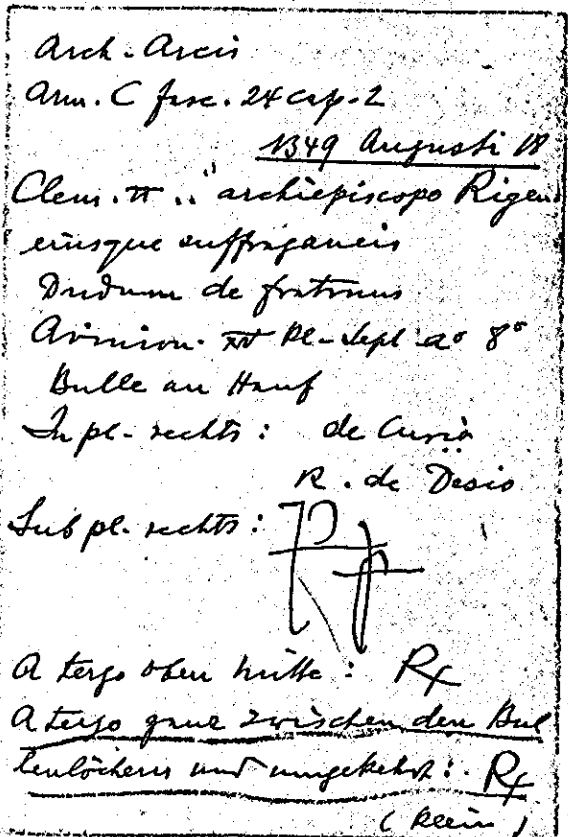 Arch. Arcis
Arm. C fasc. 24 cap. 2
1349 Augusti 18
Clem. VI .. archiepiscopo Rigen
eiusque suffraganeis
Dudum de fratrum
Avinion. XV Kl. Sept. ao 8o
Bulle an Hanf
In pl. rechts: de Curia
R. de Desio
Sub pl. rechts:
A tergo oben mitte: Rx
A tergo ganz zwischen den Bul
lenlöchern und umgekehrt: Rx
(klein)